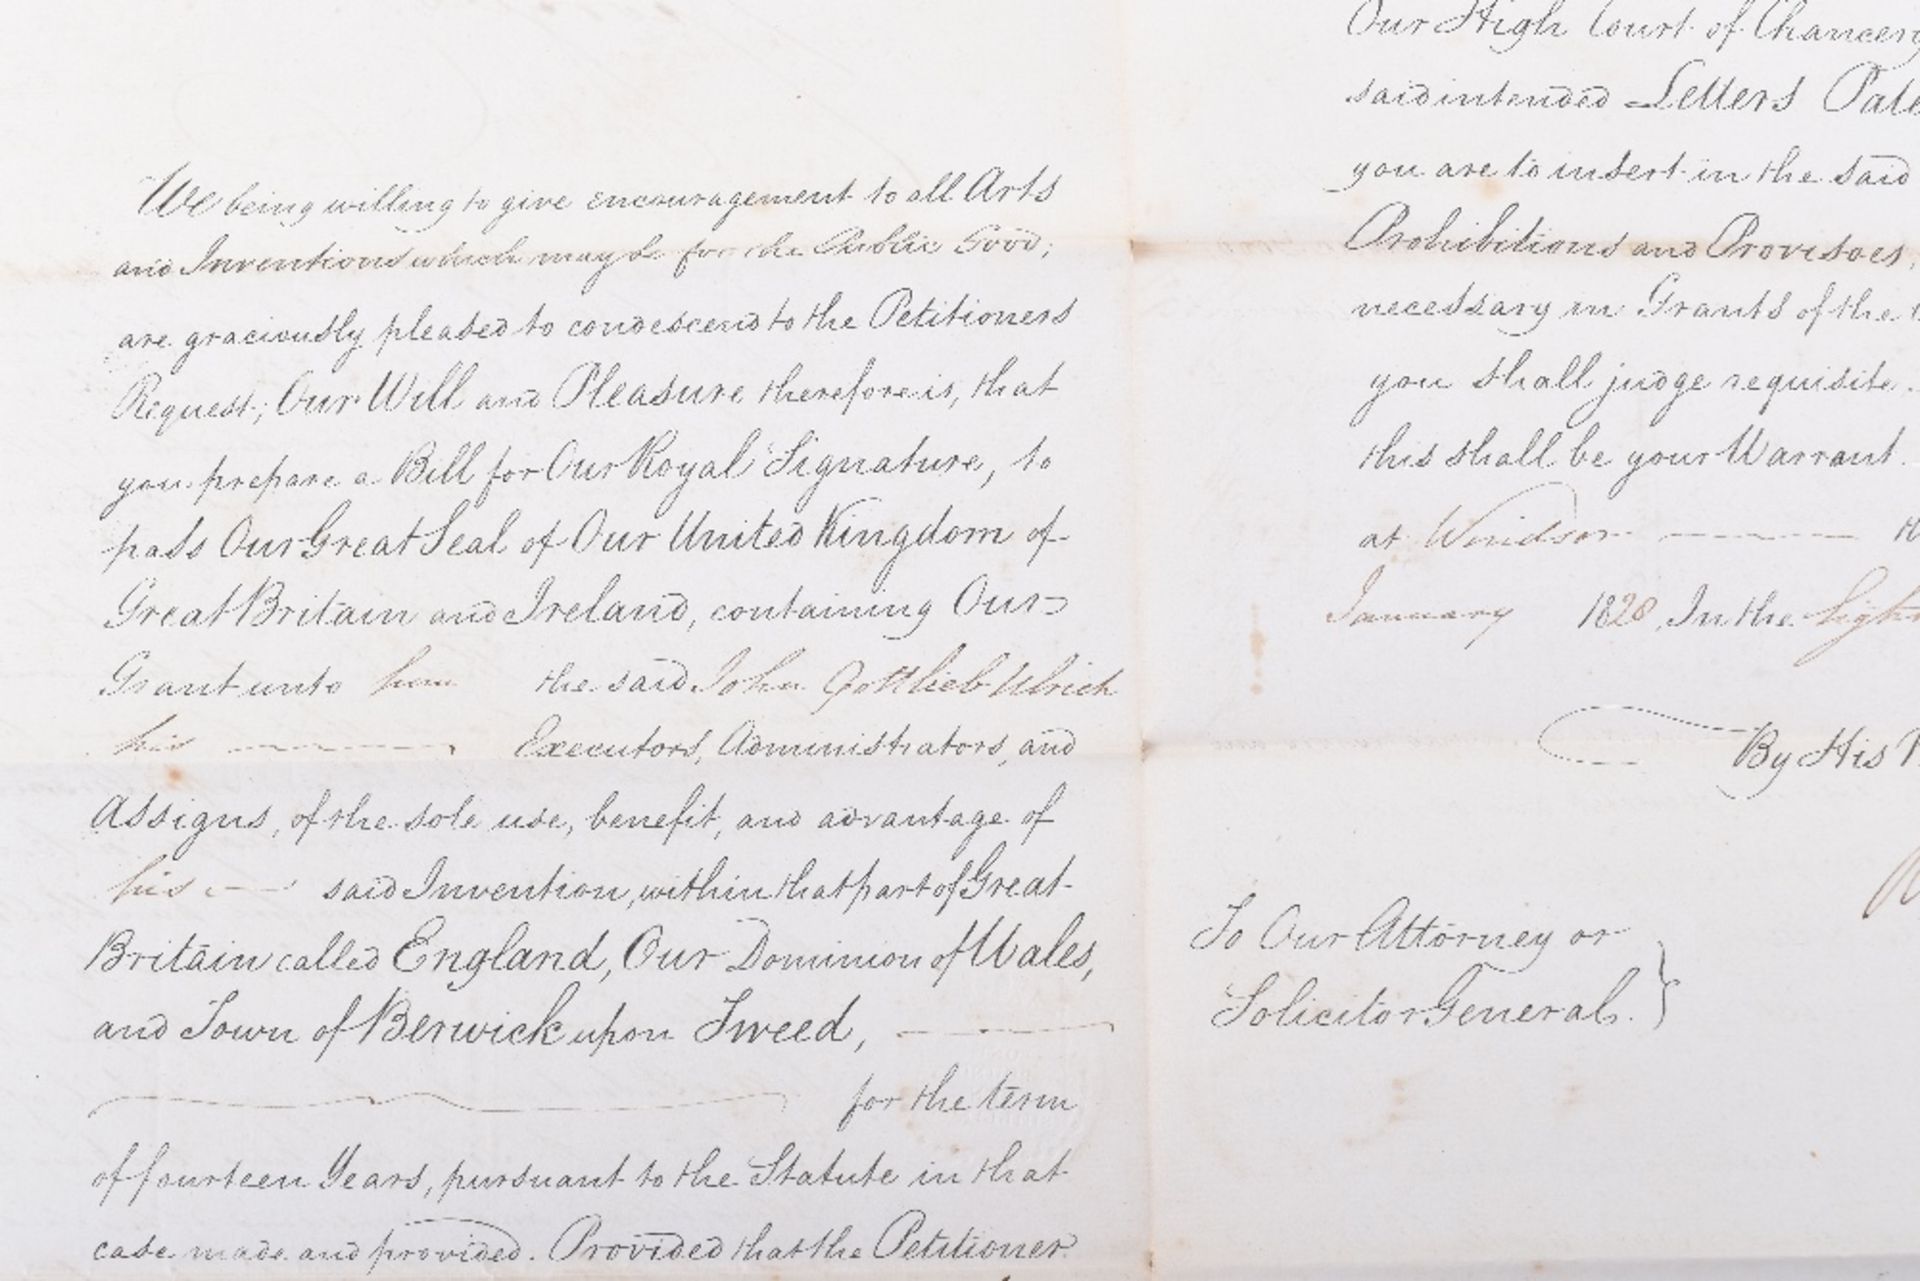 We being willing to give encouragement to all Arts
and Inventions which may be for the Public Good;
are graciously pleased to condescend to the Petitioners
Request; Our Will and Pleasure therefore is, that
you prepare a Bill for Our Royal Signature, to
pass Our Great Seal of Our United Kingdom of
Great Britain and Ireland, containing Our
Grant unto him the said John Gottlieb Ulrich
his Executors, Administrators, and
Assigns, of the sole use, benefit, and advantage of
his said Invention, within that part of Great
Britain called England, Our Dominion of Wales,
and Town of Berwick upon Tweed,
for the term
of fourteen Years, pursuant to the Statute in that
case made and provided. Provided that the Petitioner
Our High Court of Chancery
said intended Letters Pate
you are to insert in the said
Prohibitions and Provisoes,
necessary in Grants of the
you shall judge requisite.
this shall be your Warrant.
at Windsor
January 1828, In the
By His
To Our Attorney or
Solicitor General.